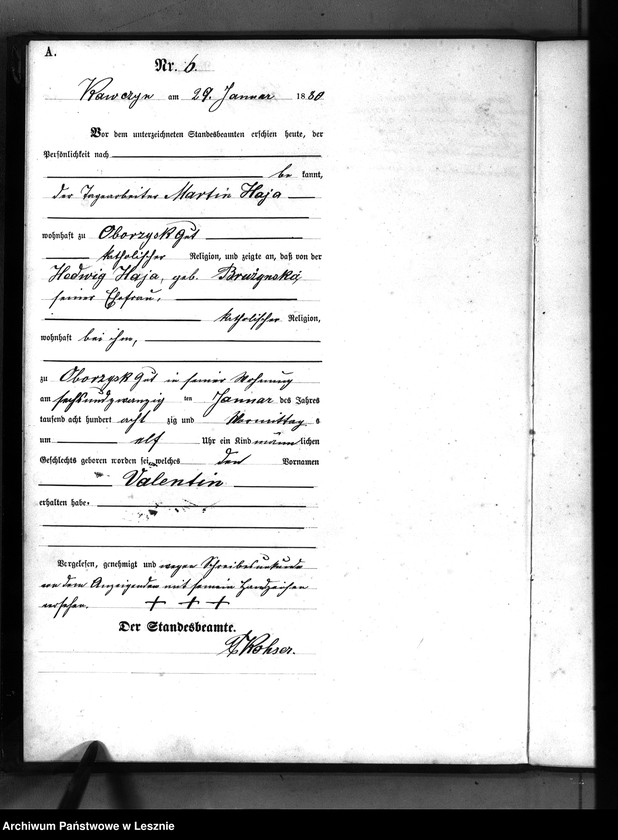 A.
Nr. 6
Kawczyn am 29. Januar 1880
Vor dem unterzeichneten Standesbeamten erschien heute, der
Persönlichkeit nach
be kannt,
der Tagearbeiter Martin Haja
wohnhaft zu Oborzysk Gut
katholischer Religion, und zeigte an, daß von der
Hedwig Haja, geb.
seiner Ehefrau,
katholischer Religion,
wohnhaft bei ihm,
zu Oborzysk Gut in seiner Wohnung
am sechsundzwanzig ten Januar des Jahres
tausend acht hundert acht zig und Vormittag s
um elf Uhr ein Kind männ lichen
Geschlechts geboren worden sei, welches den Vornamen
Valentin
erhalten habe.
Vorgelesen, genehmigt und wegen
von dem Anzeigenden mit seinem Handzeichen
versehen. + + +
Der Standesbeamte.
Kohser.
Archiwum Państwowe w Lesznie